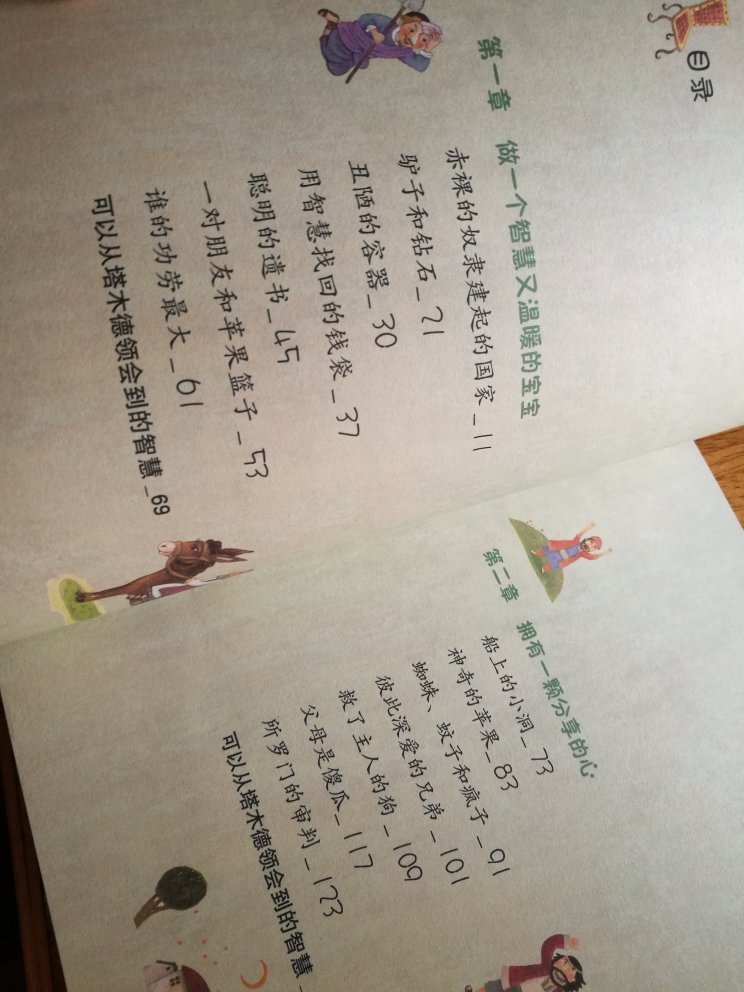 目录
第一章 做一个智慧又温暖的宝宝
赤裸的奴隶建起的国家_11
驴子和钻石_21
丑陋的容器_30
用智慧找回的钱袋_37
聪明的遗书_45
一对朋友和苹果篮子_53
谁的功劳最大_61
可以从塔木德领会到的智慧_69
第二章 拥有一颗分享的心
船上的小洞_73
神奇的苹果_83
蜘蛛、蚊子和疯子_91
彼此深爱的兄弟_101
救了主人的狗_109
父母是傻瓜_117
所罗门的审判_123
可以从塔木德领会到的智慧_